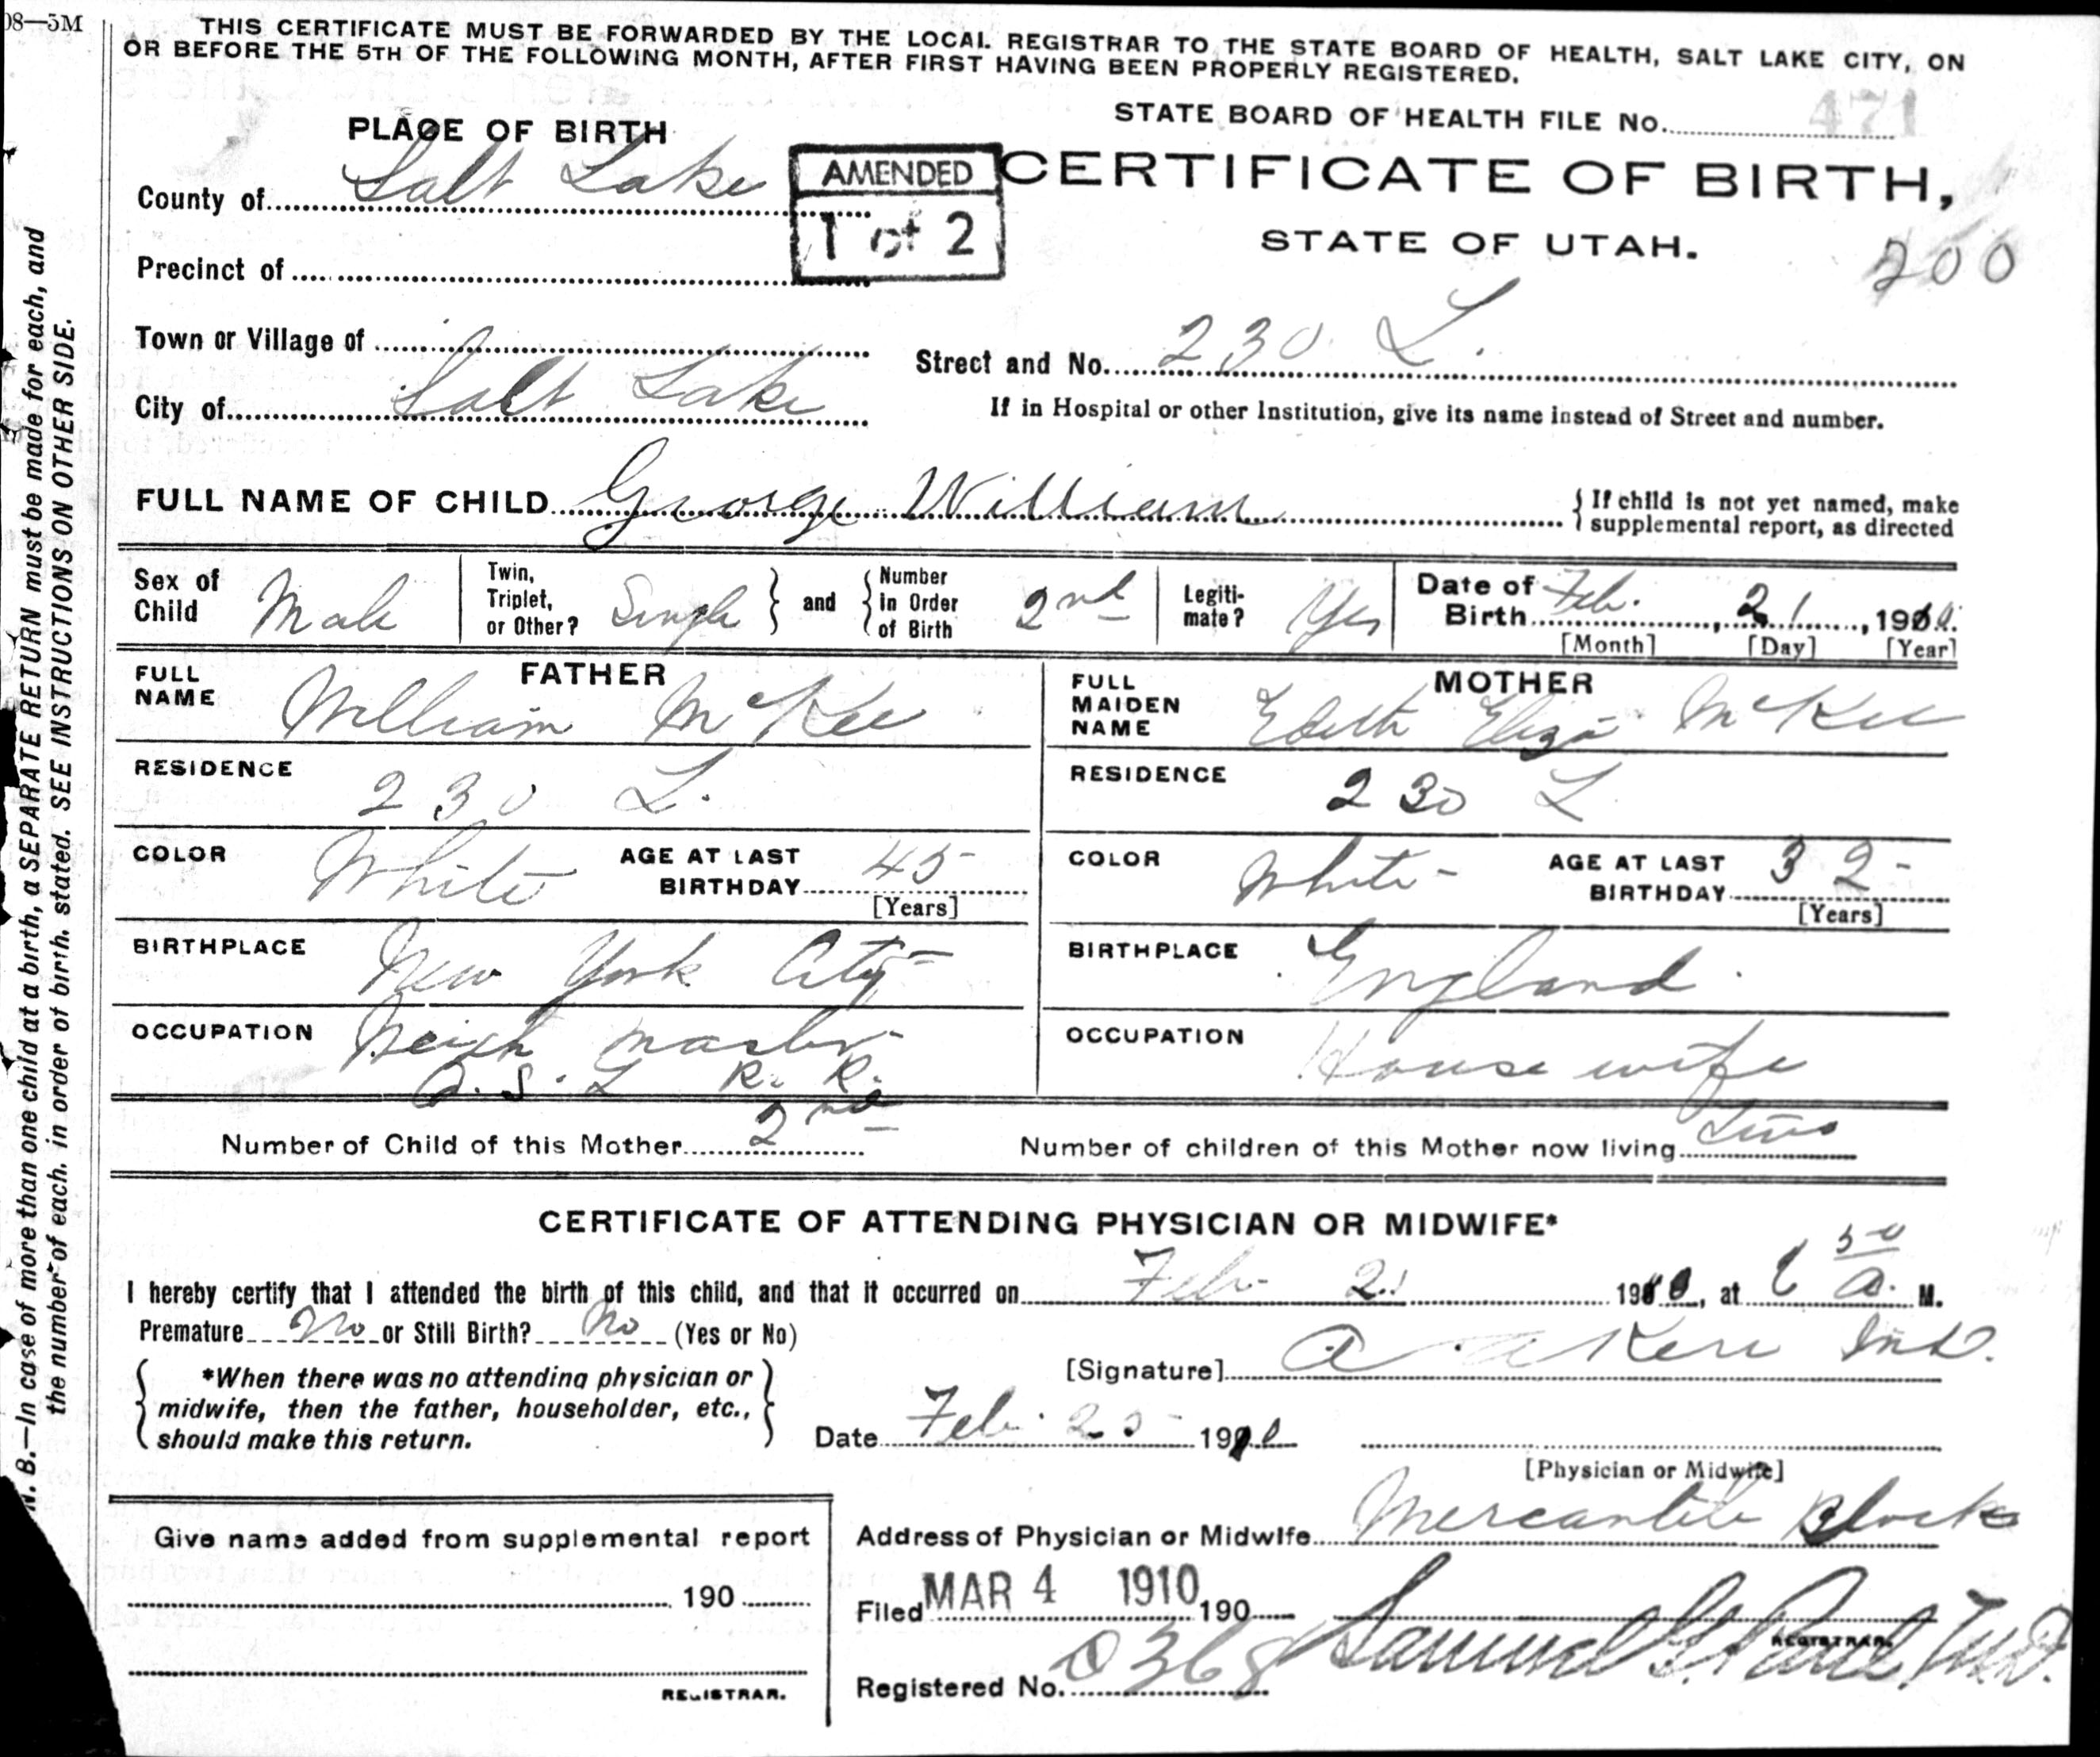 08—5M
THIS CERTIFICATE MUST BE FORWARDED BY THE LOCAL REGISTRAR TO THE STATE BOARD OF HEALTH, SALT LAKE CITY, ON
OR BEFORE THE 5TH OF THE FOLLOWING MONTH, AFTER FIRST HAVING BEEN PROPERLY REGISTERED.
STATE BOARD OF HEALTH FILE No. 471
PLACE OF BIRTH
County of Salt Lake
AMENDED
1 of 2
CERTIFICATE OF BIRTH,
STATE OF UTAH.
200
Precinct of
Town or Village of
Street and No. 230 L.
City of Salt Lake
If in Hospital or other Institution, give its name instead of Street and number.
FULL NAME OF CHILD George William
{ If child is not yet named, make
supplemental report, as directed
Sex of Child Male
Twin, Triplet, or Other? Single } and { Number in Order of Birth 2nd
Legiti-mate? Yes
Date of Birth Feb. 21, 1910.
[Month] [Day] [Year]
FATHER
FULL NAME William McKee
RESIDENCE 230 L.
COLOR White
AGE AT LAST BIRTHDAY 45
[Years]
BIRTHPLACE New York City
OCCUPATION Weigh master
O. S. L R. R.
MOTHER
FULL MAIDEN NAME Edith Eliza McKee
RESIDENCE 230 L
COLOR White
AGE AT LAST BIRTHDAY 32
[Years]
BIRTHPLACE England
OCCUPATION House wife
Number of Child of this Mother 2nd
Number of children of this Mother now living Two
CERTIFICATE OF ATTENDING PHYSICIAN OR MIDWIFE*
I hereby certify that I attended the birth of this child, and that it occurred on Feb 21 1910, at 6 50 a. M.
Premature No or Still Birth? No (Yes or No)
[Signature]
{ *When there was no attending physician or
midwife, then the father, householder, etc.,
should make this return. }
Date Feb. 25 1910
[Physician or Midwife]
Address of Physician or Midwife Mercantile Block
Give name added from supplemental report
190
REGISTRAR.
Filed MAR 4 1910 190
Samuel G. Paul, M.D.
REGISTRAR.
Registered No. 0368
N. B.—In case of more than one child at a birth, a SEPARATE RETURN must be made for each, and
the number of each, in order of birth, stated. SEE INSTRUCTIONS ON OTHER SIDE.